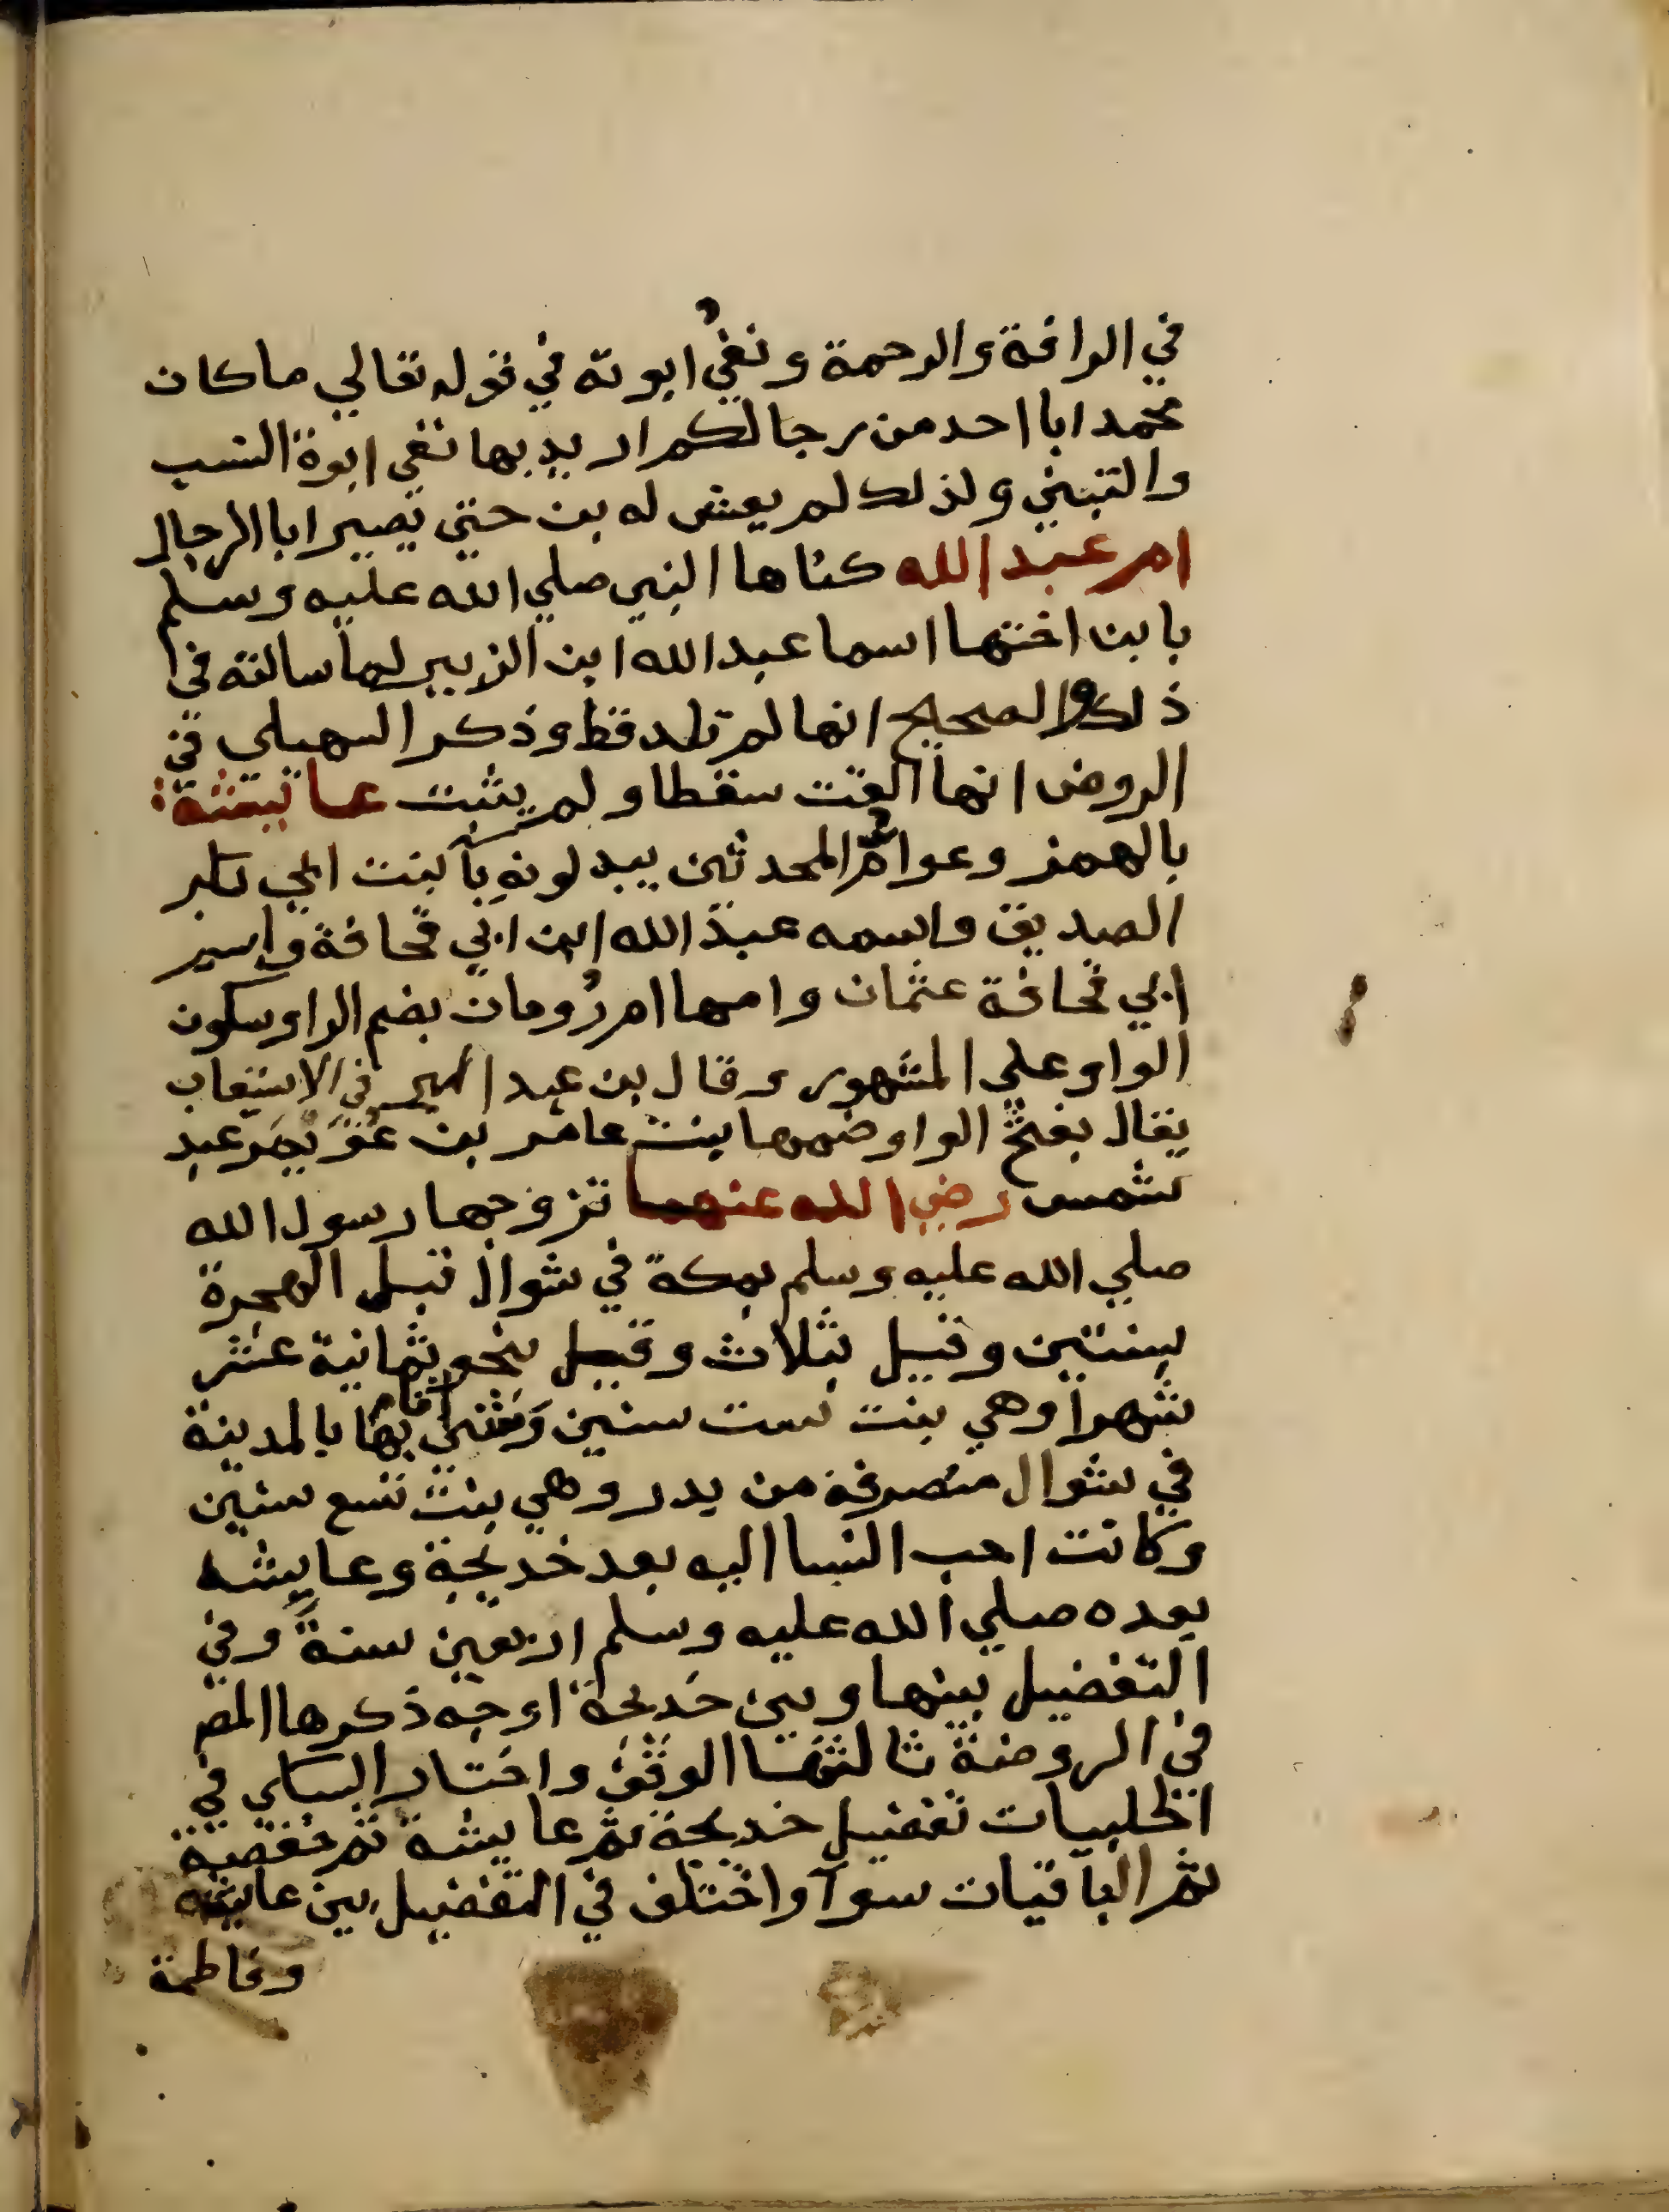 في الرافة والرحمة ونفي ابوته في قوله تعالي ما كان
محمد ابا احد من رجالكم اريد بها نفي ابوة النسب
والتبني ولذلك لم يعش له بن حتي يصير ابا الرجال
ام عبد الله كناها النبي صلي الله عليه وسلم
بابن اختها اسما عبد الله ابن الزبير لما سالته في
ذلك والصحيح انها لم تلد قط وذكر السهيلي في
الروض انها القت سقطا ولم يثبت عائشة
بالهمز وعوام المحدثين يبدلونه يآ بنت ابي بكر
الصديق واسمه عبد الله ابن ابي قحافة واسم
ابي قحافة عثمان وامها ام رُومان بضم الرا وسكون
الواو علي المشهور وقال بن عبد البر في الاستيعاب
يقال بفتح الواو وضمها بنت عامر بن عويمر عبد
شمس رضي الله عنهما تزوجها رسول الله
صلي الله عليه وسلم بمكة في شوال قبل الهجرة
بسنتين وقيل بثلاث وقيل بنحو ثمانية عشر
شهرا وهي بنت ست سنين وبني بها بالمدينة
في شوال منصرفه من بدر وهي بنت تسع سنين
وكانت احب النسا اليه بعد خديجة وعايشه
بعده صلي الله عليه وسلم اربعين سنة وفي
التفضيل بينها وبين خديجة اوجه ذكرها المص
في الروضة ثالثها الوقف واختار السبكي في
الحلبيات تفضيل خديجة ثم عايشة ثم حفصة
ثم الباقيات سوآ واختلف في التفضيل بين عايشه
وفاطمة